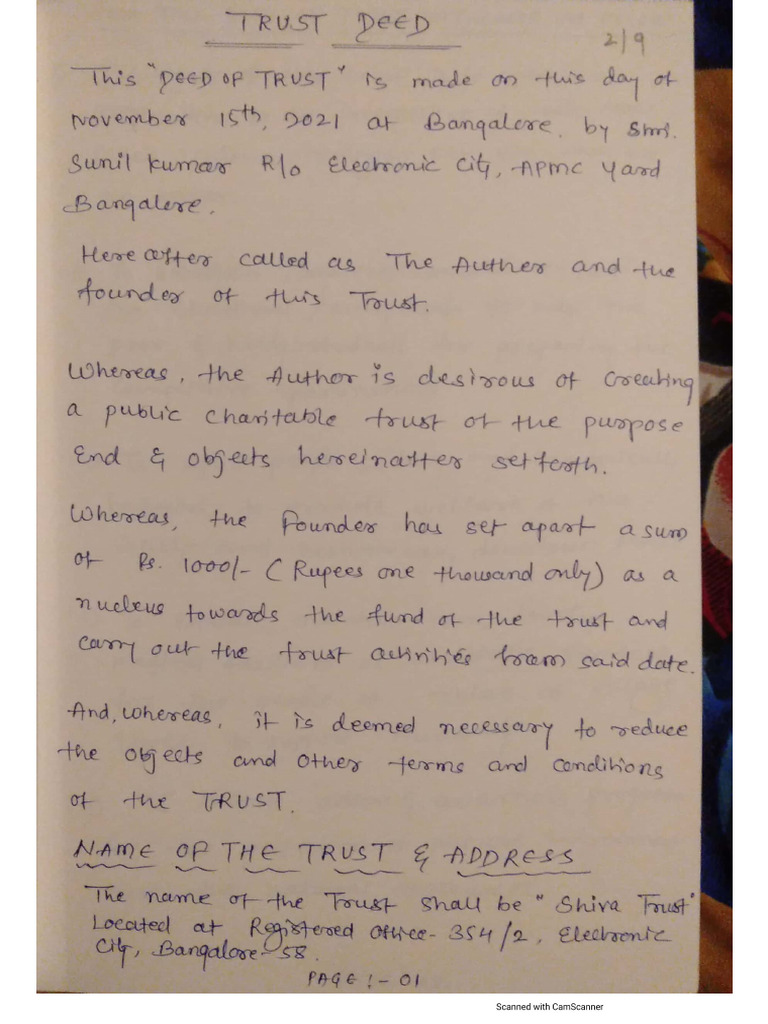 TRUST DEED
2/9
This "DEED OF TRUST" is made on this day of
November 15th, 2021 at Bangalore, by Shri.
Sunil Kumar R/o Electronic City, APMC Yard
Bangalore.
Here after called as The Auther and the
founder of this Trust.
Whereas, the Author is desirous of Creating
a public charitable trust of the purpose
End & objects hereinafter set forth.
Whereas, the Founder has set apart a sum
of Rs. 1000/- (Rupees one thousand only) as a
nucleus towards the fund of the trust and
carry out the trust activities from said date.
And, whereas, it is deemed necessary to reduce
the objects and other terms and conditions
of the TRUST.
NAME OF THE TRUST & ADDRESS
The name of the Trust shall be "Shiva Trust"
Located at Registered Office- 354/2, Electronic
City, Bangalore-58.
PAGE:- 01
Scanned with CamScanner